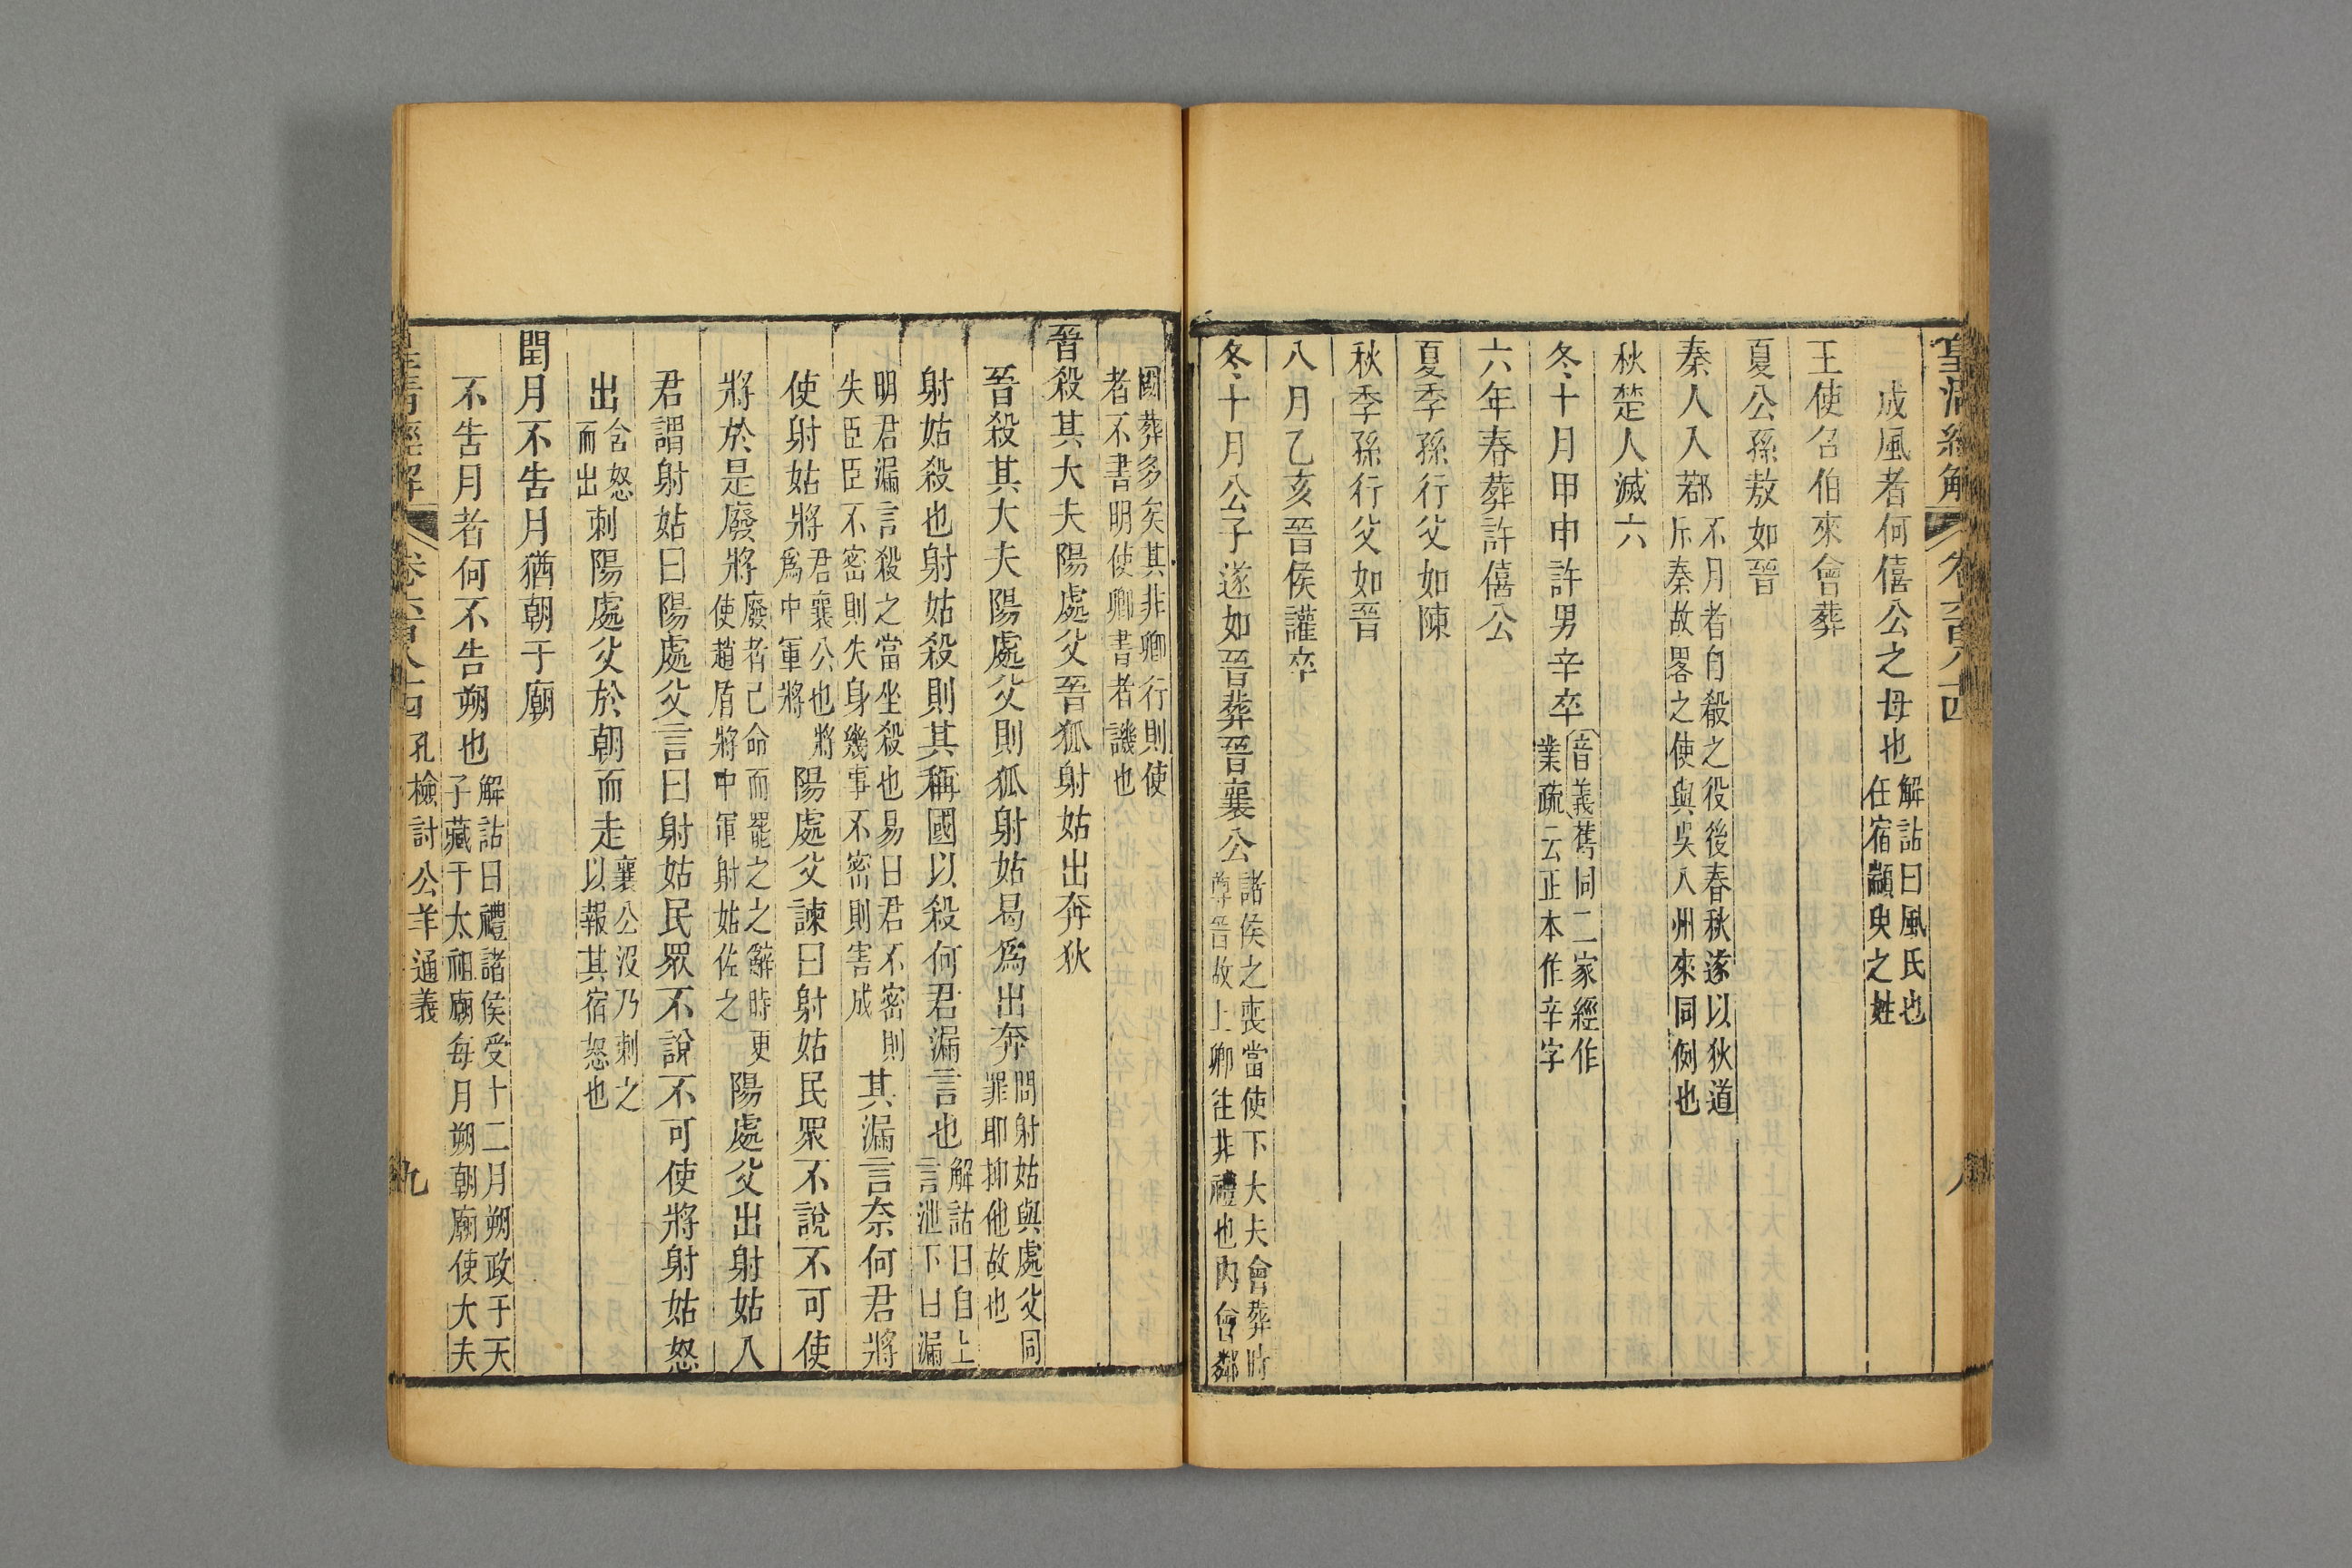 皇清經解 卷六百八十四 八
成風者何僖公之母也解詁曰風氏也
任宿顓臾之姓
王使召伯來會葬
夏公孫敖如晉
秦人入鄀不月者自殽之役後春秋遂以狄道
斥秦故畧之使與吳入州來同例也
秋楚人滅六
冬十月甲申許男辛卒音義舊同二家經作
業疏云正本作辛字
六年春葬許僖公
夏季孫行父如陳
秋季孫行父如晉
八月乙亥晉侯讙卒
冬十月公子遂如晉葬晉襄公諸侯之喪當使下大夫會葬時
尊晉故上卿往非禮也內會鄰
國葬多矣其非卿行則使
者不書明使卿書者譏也
晉殺其大夫陽處父晉狐射姑出奔狄
晉殺其大夫陽處父則狐射姑曷爲出奔問射姑與處父同
罪耶抑他故也
射姑殺也射姑殺則其稱國以殺何君漏言也解詁曰自上
言泄下曰漏
明君漏言殺之當坐殺也易曰君不密則
失臣臣不密則失身幾事不密則害成
其漏言奈何君將
使射姑將君襄公也將
爲中軍將
陽處父諫曰射姑民眾不說不可使
將於是廢將廢者己命而罷之之辭時更
使趙盾將中軍射姑佐之
陽處父出射姑入
君謂射姑曰陽處父言曰射姑民眾不說不可使將射姑怒
出含怒
而出
刺陽處父於朝而走襄公沒乃刺之
以報其宿怒也
閏月不告月猶朝于廟
不告月者何不告朔也解詁曰禮諸侯受十二月朔政于天
子藏于太祖廟每月朔朝廟使大夫
皇清經解 卷六百八十四 孔檢討公羊通義 九